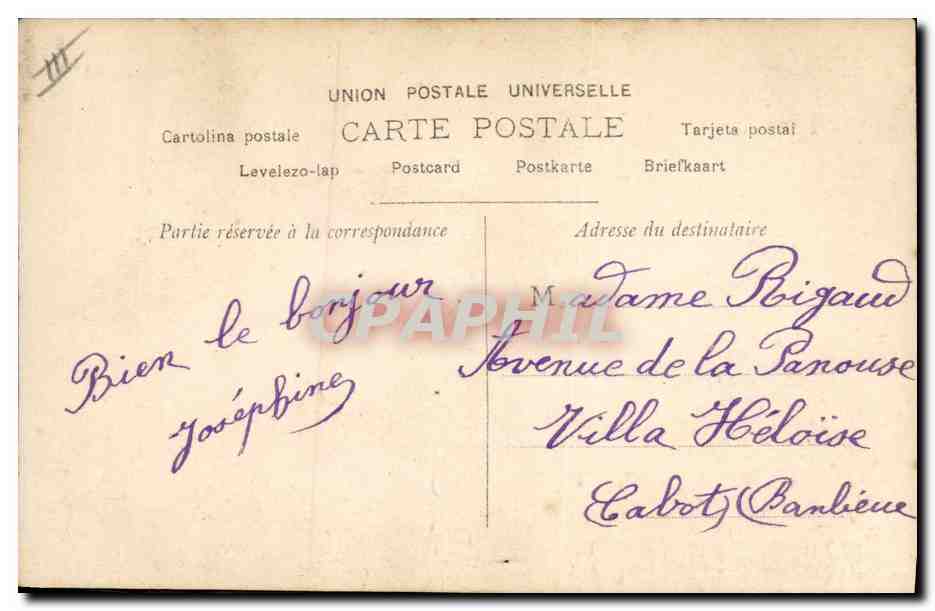 III
UNION POSTALE UNIVERSELLE
Cartolina postale CARTE POSTALE Tarjeta postal
Levelezo-lap Postcard Postkarte Briefkaart
Partie réservée à la correspondance
Adresse du destinataire
Bien le bonjour
Joséphine
Madame Rigaud
Avenue de la Panouse
Villa Héloïse
Cabot (Banlieue
CPAPHIL